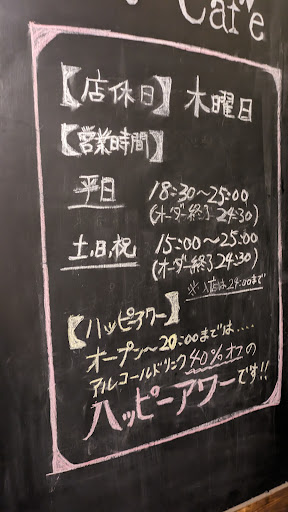 Cafe
【店休日】木曜日
【営業時間】
平日 18:30〜25:00
(オーダー終了24:30)
土,日,祝 15:00〜25:00
(オーダー終了24:30)
※入店は24:00まで
【ハッピーアワー】
オープン〜20:00までは....
アルコールドリンク40%オフの
ハッピーアワーです!!